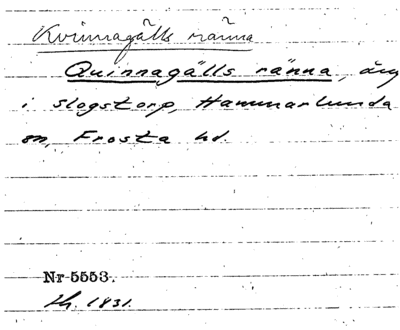 Kvinnagälls ränna
Quinnagälls ränna, äng
i Slogstorp, Hammarlunda
sn, Frosta hd.
Nr 5553.
1831.